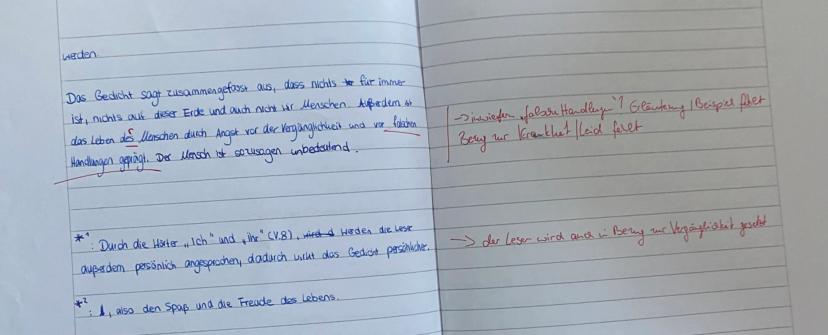 werden.
Das Gedicht sagt zusammengefasst aus, dass nichts für immer
ist, nichts auf dieser Erde und auch nicht wir Menschen. Außerdem ist
das Leben des Menschen durch Angst vor der Vergänglichkeit und vor falschen
Handlungen geprägt. Der Mensch ist sozusagen unbedeutend.
→ inwiefern "falsche Handlungen"? Erläuterung / Beispiel fehlt
Bezug zur Krankheit / Leid fehlt
*1: Durch die Wörter „Ich" und „ihr" (V.8), werden die Leser
außerdem persönlich angesprochen, dadurch wirkt das Gedicht persönlicher.
→ der Leser wird auch in Bezug zur Vergänglichkeit gesetzt
*2: , also den Spaß und die Freude des Lebens.